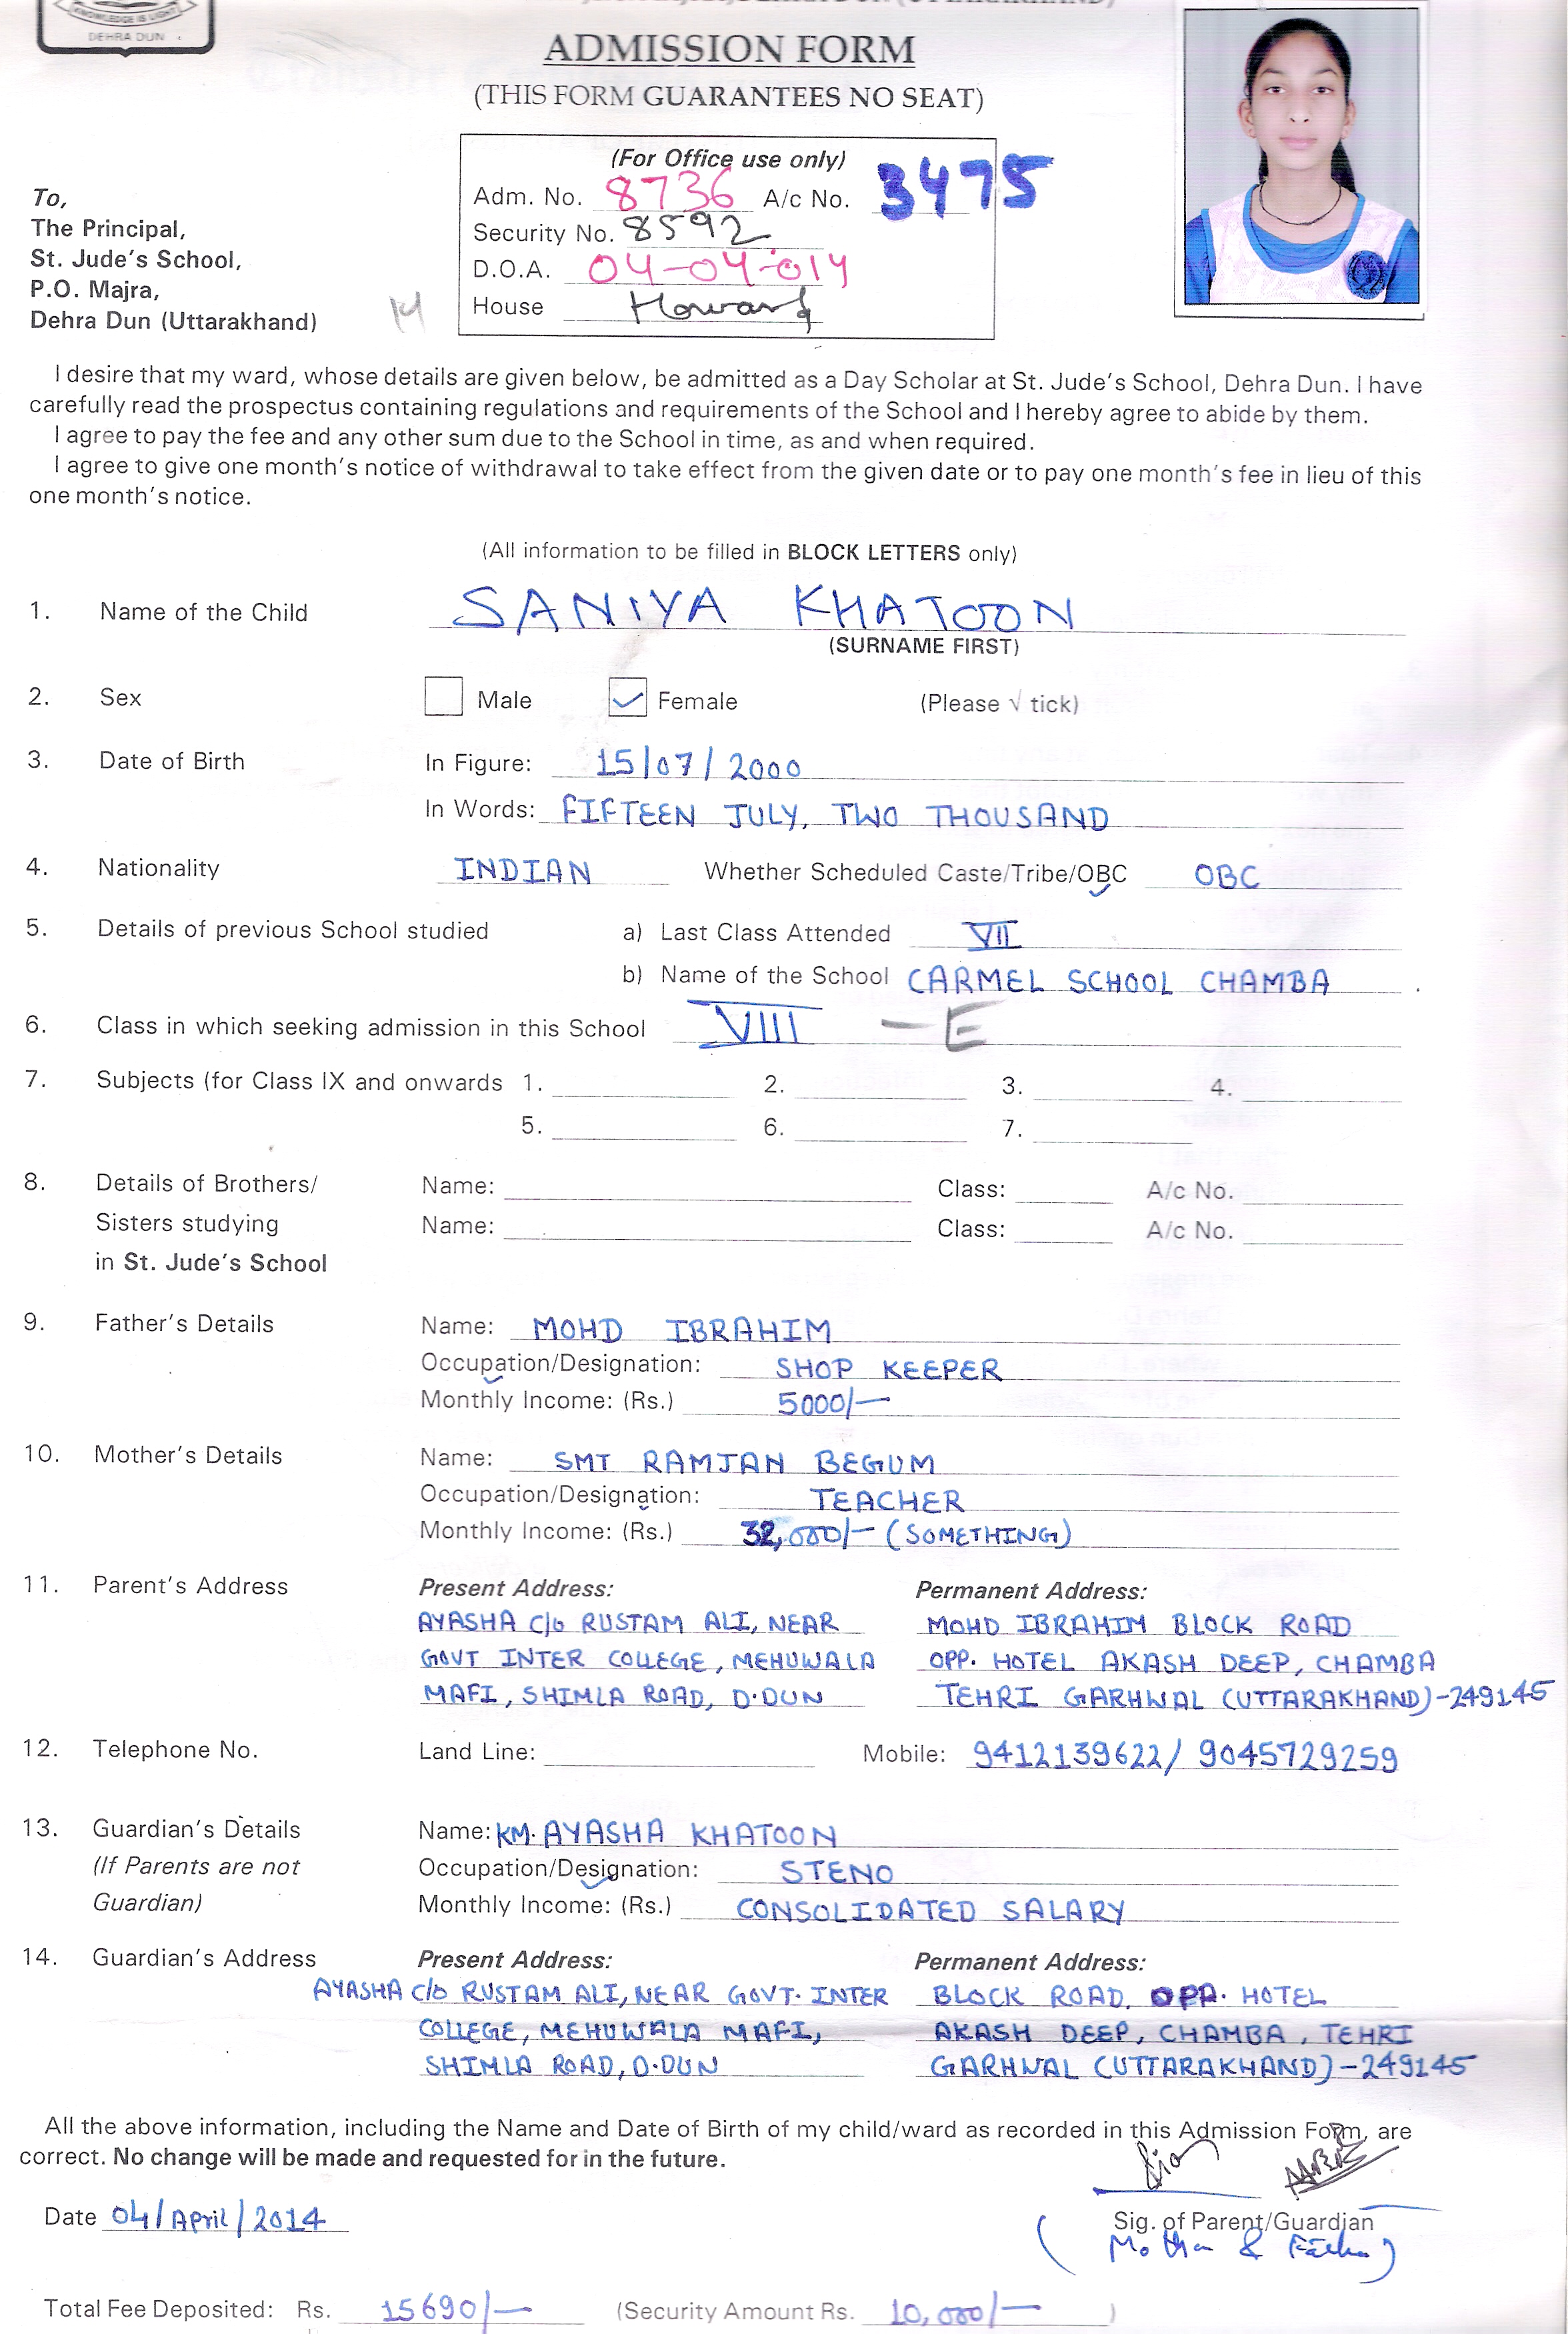 KNOWLEDGE IS LIGHT
DEHRA DUN
ADMISSION FORM
(THIS FORM GUARANTEES NO SEAT)
(For Office use only)
Adm. No. 8736 A/c No. 3475
Security No. 8592
D.O.A. 04-04-014
House Howard
To,
The Principal,
St. Jude's School,
P.O. Majra,
Dehra Dun (Uttarakhand)
I desire that my ward, whose details are given below, be admitted as a Day Scholar at St. Jude's School, Dehra Dun. I have
carefully read the prospectus containing regulations and requirements of the School and I hereby agree to abide by them.
I agree to pay the fee and any other sum due to the School in time, as and when required.
I agree to give one month's notice of withdrawal to take effect from the given date or to pay one month's fee in lieu of this
one month's notice.
(All information to be filled in BLOCK LETTERS only)
1. Name of the Child SANIYA KHATOON
(SURNAME FIRST)
2. Sex Male Female (Please √ tick)
3. Date of Birth In Figure: 15/07/2000
In Words: FIFTEEN JULY, TWO THOUSAND
4. Nationality INDIAN Whether Scheduled Caste/Tribe/OBC OBC
5. Details of previous School studied a) Last Class Attended VII
b) Name of the School CARMEL SCHOOL CHAMBA
6. Class in which seeking admission in this School VIII - E
7. Subjects (for Class IX and onwards 1. 2. 3. 4.
5. 6. 7.
8. Details of Brothers/ Name: Class: A/c No.
Sisters studying Name: Class: A/c No.
in St. Jude's School
9. Father's Details Name: MOHD IBRAHIM
Occupation/Designation: SHOP KEEPER
Monthly Income: (Rs.) 5000/-
10. Mother's Details Name: SMT RAMJAN BEGUM
Occupation/Designation: TEACHER
Monthly Income: (Rs.) 32,000/- (SOMETHING)
11. Parent's Address Present Address: Permanent Address:
AYASHA C/O RUSTAM ALI, NEAR MOHD IBRAHIM BLOCK ROAD
GOVT INTER COLLEGE, MEHUWALA OPP. HOTEL AKASH DEEP, CHAMBA
MAFI, SHIMLA ROAD, D.DUN TEHRI GARHWAL (UTTARAKHAND)-249145
12. Telephone No. Land Line: Mobile: 9412139622/ 9045729259
13. Guardian's Details Name: KM. AYASHA KHATOON
(If Parents are not Occupation/Designation: STENO
Guardian) Monthly Income: (Rs.) CONSOLIDATED SALARY
14. Guardian's Address Present Address: Permanent Address:
AYASHA C/O RUSTAM ALI, NEAR GOVT. INTER BLOCK ROAD, OPP. HOTEL
COLLEGE, MEHUWALA MAFI, AKASH DEEP, CHAMBA, TEHRI
SHIMLA ROAD, D.DUN GARHWAL (UTTARAKHAND)-249145
All the above information, including the Name and Date of Birth of my child/ward as recorded in this Admission Form, are
correct. No change will be made and requested for in the future.
Date 04/April/2014
Sig. of Parent/Guardian
(Mother & Father)
Total Fee Deposited: Rs. 15690/- (Security Amount Rs. 10,000/- )